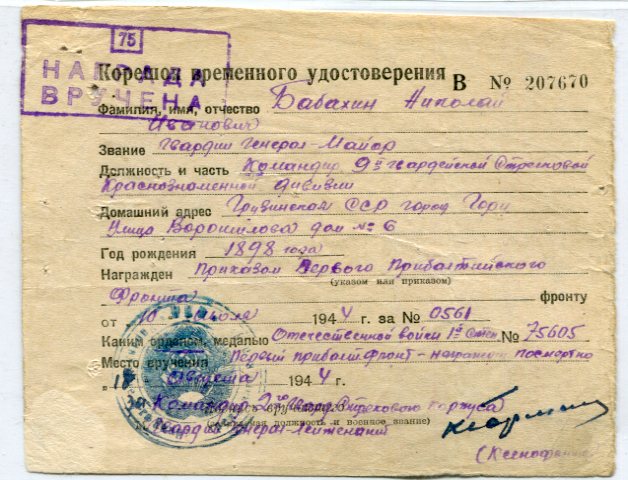 75
НАГРАДА
ВРУЧЕНА
Корешок временного удостоверения В № 207670
Фамилия, имя, отчество Бабахин Николай
Иванович
Звание Гвардии Генерал-Майор
Должность и часть Командир 9й гвардейской Стрелковой
Краснознаменной дивизии
Домашний адрес Грузинская ССР город Гори
Улица Ворошилова дом № 6
Год рождения 1898 года
Награжден Приказом Первого Прибалтийского
(указом или приказом)
Фронта фронту
от 10 июля 1944 г. за № 0561
Каким орденом, медалью Отечественной войны 1й степ № 75605
Место вручения Первый прибалт фронт - награжден посмертно
Августа 1944 г.
Командир 2го Гвард Стрелкового Корпуса
должность и военное звание)
Гвардии Генерал-Лейтенант